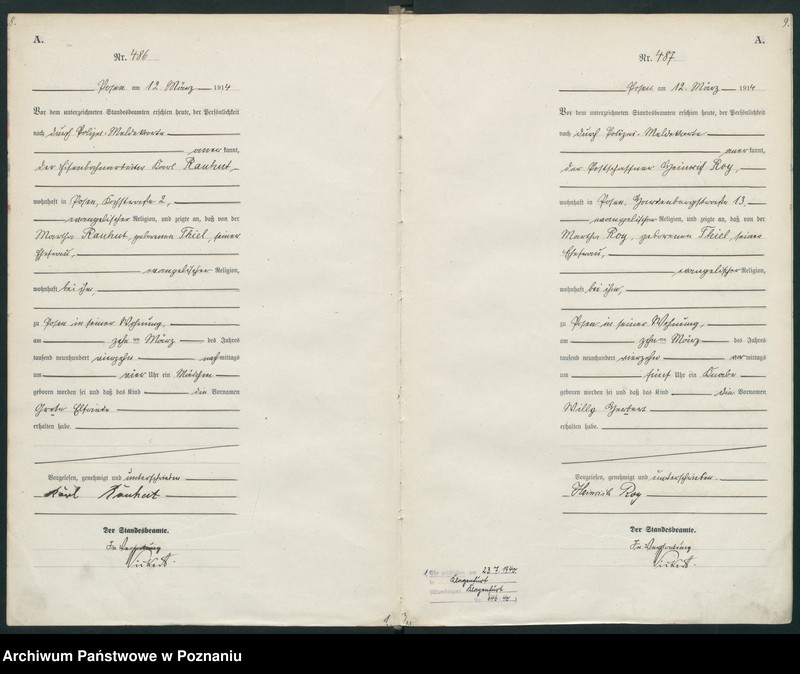 8.
A.
Nr. 486
Posen am 12. März 1914
Vor dem unterzeichneten Standesbeamten erschien heute, der Persönlichkeit
nach durch Polizei-Meldekarte
anerkannt,
der Eisenbahnarbeiter Karl Rauhut,
wohnhaft in Posen, Kochstraße 2,
evangelischer Religion, und zeigte an, daß von der
Martha Rauhut, geborenen Thiel, seiner
Ehefrau,
evangelischer Religion,
wohnhaft bei ihm,
zu Posen in seiner Wohnung,
am zehnten März des Jahres
tausend neunhundert vierzehn nachmittags
um vier Uhr ein Mädchen
geboren worden sei und daß das Kind die Vornamen
Grete Elfriede
erhalten habe.
Vorgelesen, genehmigt und unterschrieben
Karl Rauhut
Der Standesbeamte.
In Vertretung
9.
A.
Nr. 487
Posen am 12. März 1914
Vor dem unterzeichneten Standesbeamten erschien heute, der Persönlichkeit
nach durch Polizei-Meldekarte
anerkannt,
der Postschaffner Heinrich Roy,
wohnhaft in Posen, Hardenbergstraße 13,
evangelischer Religion, und zeigte an, daß von der
Martha Roy, geborenen Thiel, seiner
Ehefrau,
evangelischer Religion,
wohnhaft bei ihm,
zu Posen in seiner Wohnung,
am zehnten März des Jahres
tausend neunhundert vierzehn vormittags
um fünf Uhr ein Knabe
geboren worden sei und daß das Kind die Vornamen
Willy Herbert
erhalten habe.
Vorgelesen, genehmigt und unterschrieben.
Heinrich Roy
Der Standesbeamte.
In Vertretung
23.7.1942
Klagenfurt
Klagenfurt
Archiwum Państwowe w Poznaniu